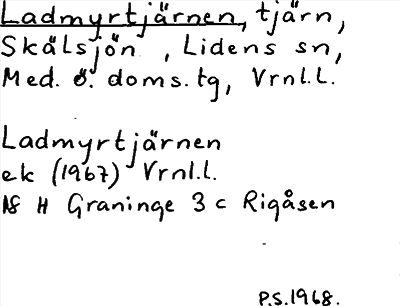 Ladmyrtjärnen, tjärn,
Skälsjön, Lidens sn,
Med. ö. doms.tg, Vrnl.L.
Ladmyrtjärnen
ek (1967) Vrnl.l.
18 H Graninge 3 c Rigåsen
P.S.1968.